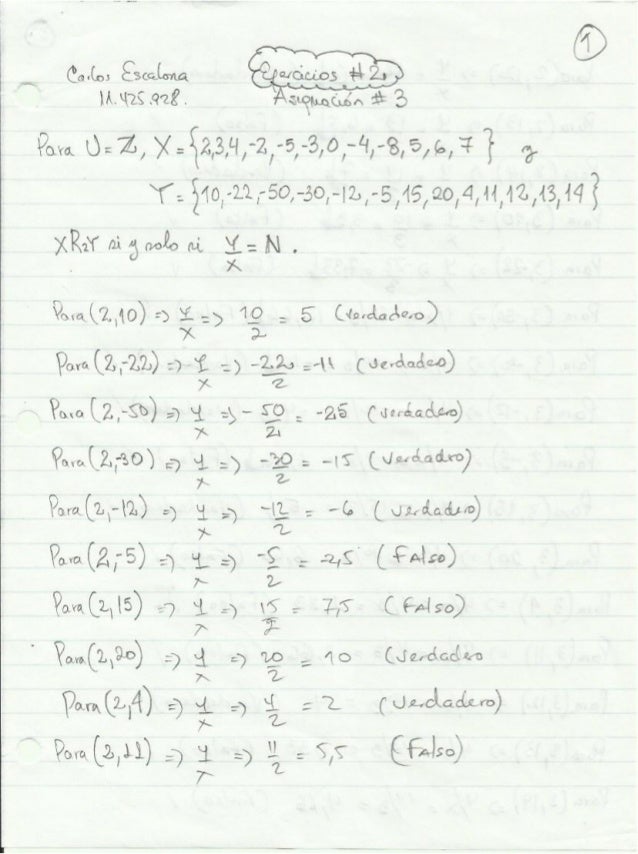 1
Carlos Escalona
Ejercicios #2.
11.425.928.
Asignación #3
Para U=Z, X={2,3,4,-2,-5,-3,0,-4,-8,5,6,7} y
Y={10,-22,-50,-30,-12,-5,15,20,4,11,12,13,14}
XR2Y si y solo si Y/X = N.
Para (2,10) => Y/X => 10/2 = 5 (verdadero)
Para (2,-22) => Y/X => -22/2 = -11 (verdadero)
Para (2,-50) => Y/X => -50/2 = -25 (verdadero)
Para (2,-30) => Y/X => -30/2 = -15 (verdadro)
Para (2,-12) => Y/X => -12/2 = -6 (verdadero)
Para (2,-5) => Y/X => -5/2 = -2,5 (FAlso)
Para (2,15) => Y/X => 15/2 = 7,5 (FAlso)
Para (2,20) => Y/X => 20/2 = 10 (verdadero
Para (2,4) => Y/X => 4/2 = 2 (verdadero)
Para (2,11) => Y/X => 11/2 = 5,5 (FAlso)